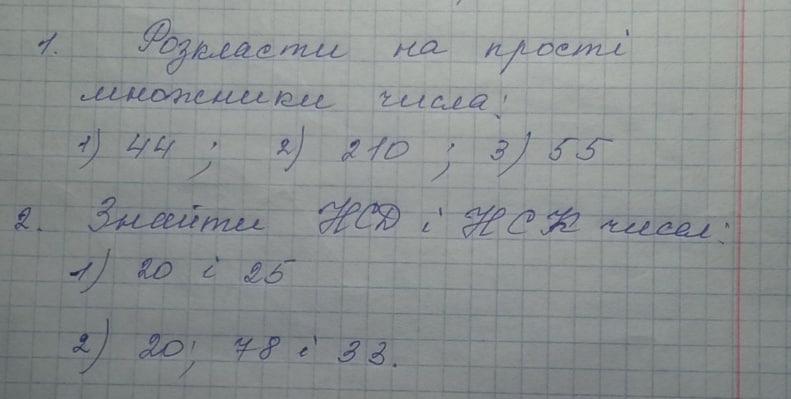 1. Розкласти на прості
множники числа:
1) 44 ; 2) 210 ; 3) 55
2. Знайти НСД і НСК чисел:
1) 20 і 25
2) 20; 78 і 33.